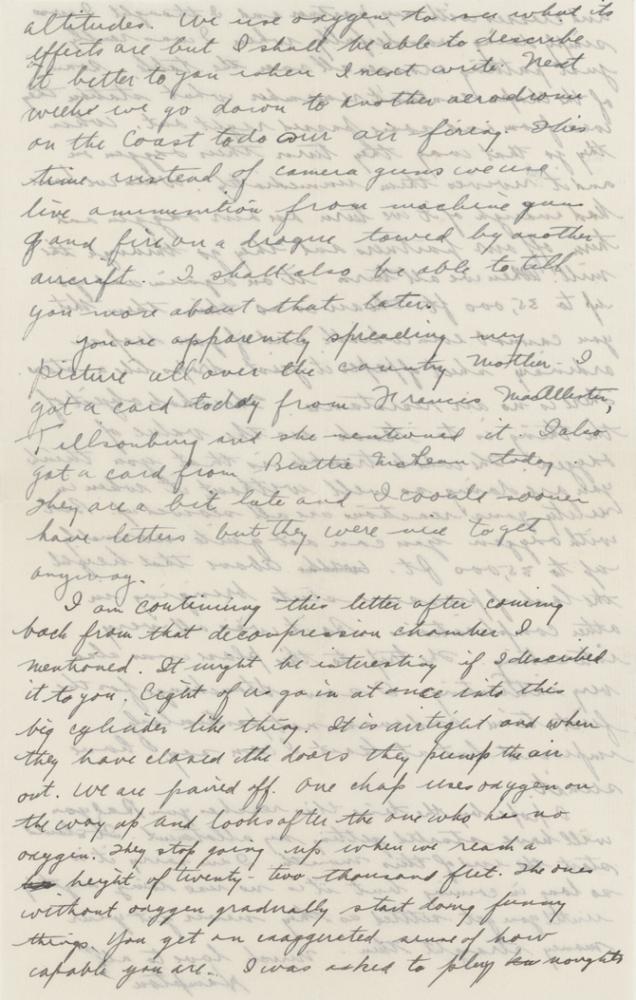 altitudes. We use oxygen to see what its
effects are but I shall be able to describe
it better to you when I next write. Next
week we go down to another aerodrome
on the Coast to do our air firing. This
time instead of camera guns we use
live ammunition from machine guns
and fire on a drogue towed by another
aircraft. I shall also be able to tell
you more about that later.
You are apparently spreading my
picture all over the country Mother. I
got a card today from Frances
Tillsonburg and she mentioned it. I also
got a card from Beattie McLean today.
They are a bit late and I would sooner
have letters but they were nice to get
anyway.
I am continuing this letter after coming
back from that decompression chamber I
mentioned. It might be interesting if I described
it to you. Eight of us go in at once into this
big cylinder like thing. It is airtight and when
they have closed the doors they pump the air
out. We are paired off. One chap uses oxygen on
the way up and looks after the one who has no
oxygen. They stop going up when we reach a
height of twenty-two thousand feet. The ones
without oxygen gradually start doing funny
things. You get an exaggerated sense of how
capable you are. I was asked to play noughts